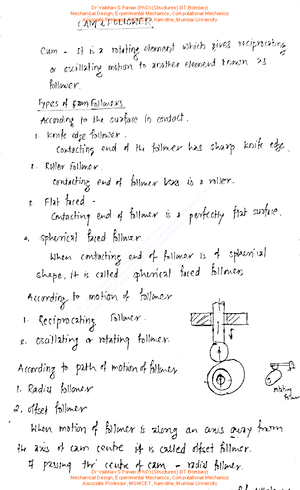 Dr Vaibhav S Pawar (PhD)(Structures) (IIT Bombay)
Mechanical Design, Experimental Mechanics, Computational Mechanics
Associate Professor, MGMCET, Kamothe, Mumbai University
CAM & FOLLOWER
Cam - It is a rotating element which gives reciprocating
or oscillating motion to another element known as
follower.
Types of Followers
According to the surface in contact.
1. knife edge follower.
Contacting end of the follower has sharp knife edge.
2. Roller Follower.
Contacting end of follower is a roller.
3. Flat faced -
Contacting end of follower is a perfectly flat surface.
4. Spherical faced follower.
When contacting end of follower is of spherical
shape, it is called spherical faced follower.
According to motion of follower
1. Reciprocating Follower.
2. Oscillating or rotating follower.
According to path of motion of follower
rotating
follower
1. Radial follower
2. offset follower
When motion of follower is along an axis away from
the axis of cam centre it is called offset follower.
If passing the centre of cam - radial follower.
Dr Vaibhav S Pawar (PhD)(Structures) (IIT Bombay)
Mechanical Design, Experimental Mechanics, Computational Mechanics
Associate Professor, MGMCET, Kamothe, Mumbai University